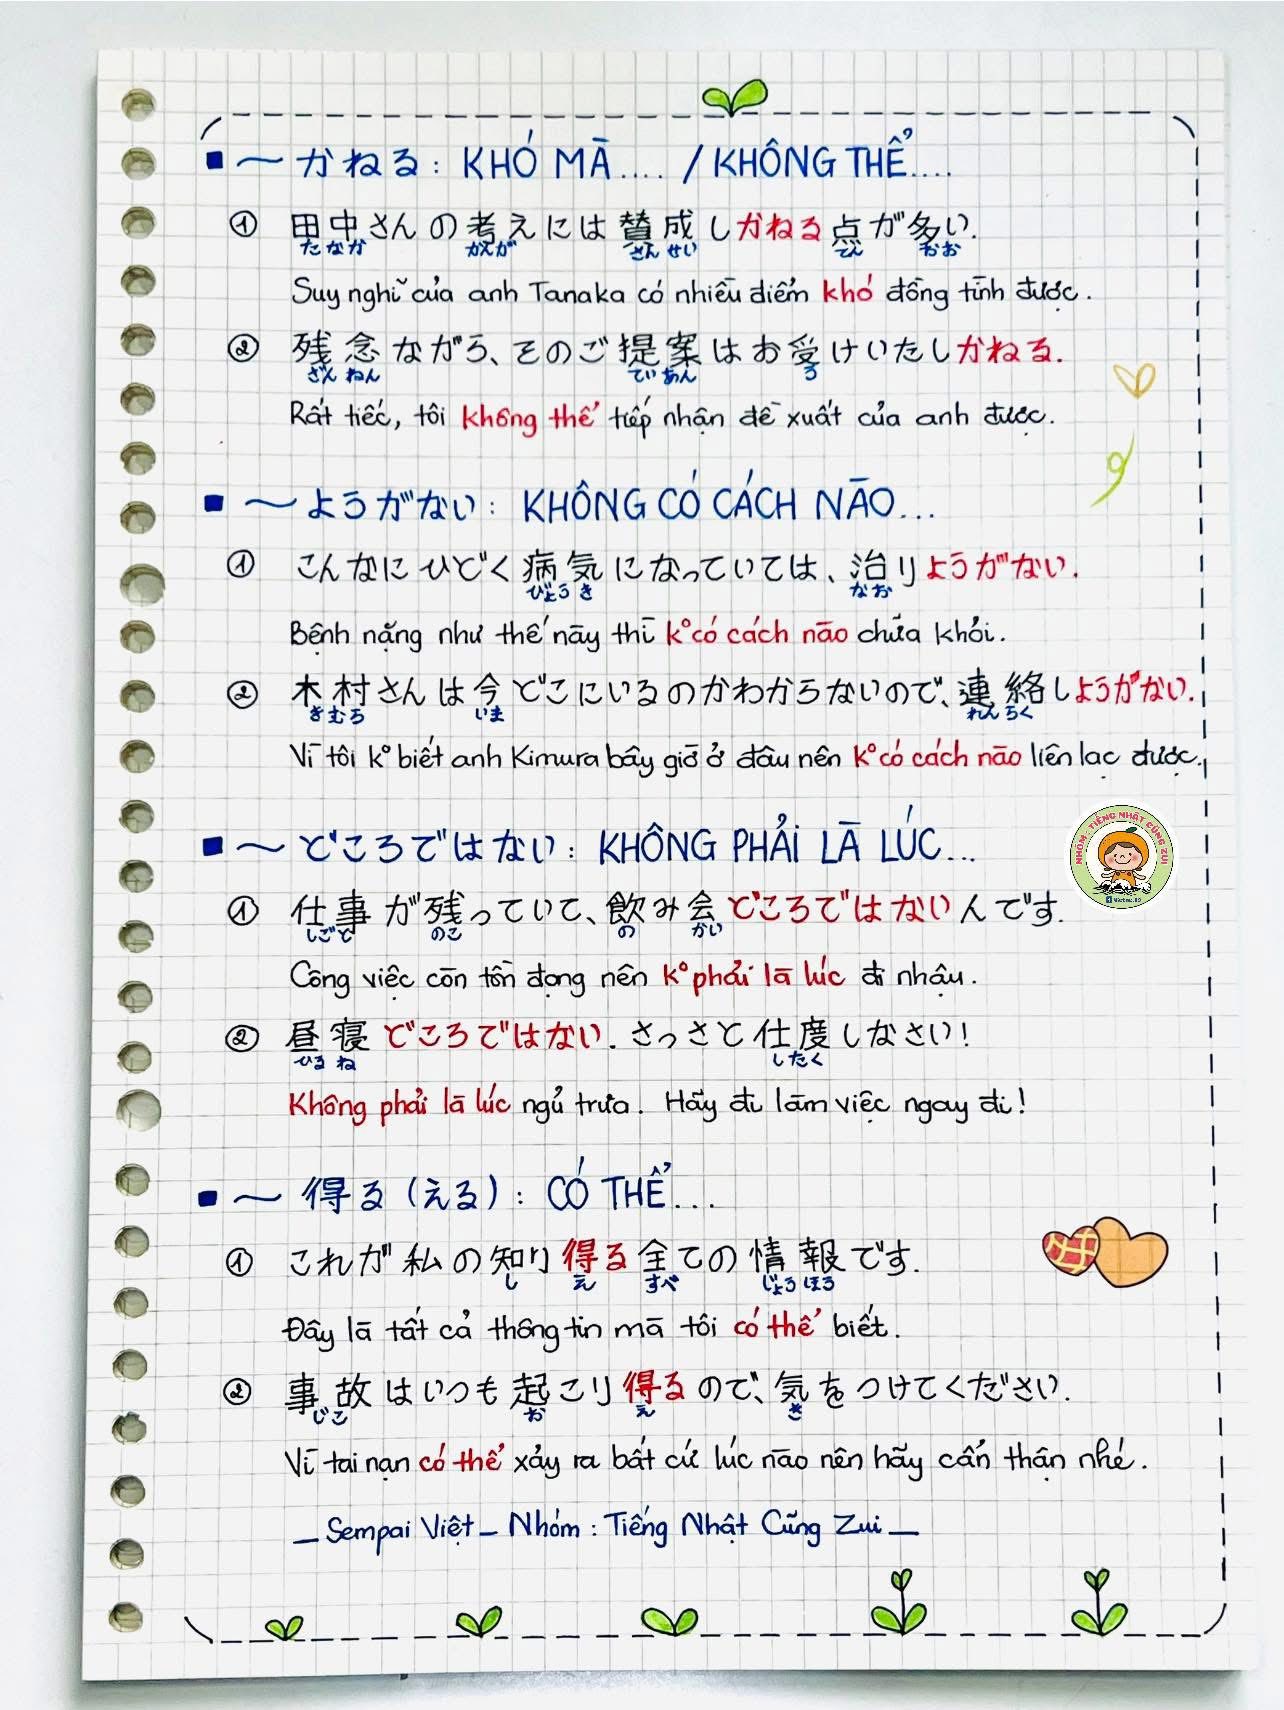 ～かねる: KHÓ MÀ.... / KHÔNG THỂ....
① 田中さんの考えには賛成しかねる点が多い.
たなか かんが さんせい てん おお
Suy nghĩ của anh Tanaka có nhiều điểm khó đồng tình được.
② 残念ながら、そのご提案はお受けいたしかねる.
ざんねん ていあん う
Rất tiếc, tôi không thể tiếp nhận đề xuất của anh được.
～ようがない: KHÔNG CÓ CÁCH NÀO...
① こんなにひどく病気になっていては、治りようがない.
びょうき なお
Bệnh nặng như thế này thì k° có cách nào chữa khỏi.
② 木村さんは今どこにいるのかわからないので、連絡しようがない.
きむら いま れんらく
Vì tôi k° biết anh Kimura bây giờ ở đâu nên k° có cách nào liên lạc được.
～どころではない: KHÔNG PHẢI LÀ LÚC...
NHÓM: TIẾNG NHẬT CŨNG ZUI
① 仕事が残っていて、飲み会どころではないんです.
しごと のこ の かい
Công việc còn tồn đọng nên k° phải là lúc đi nhậu.
② 昼寝どころではない. さっさと仕度しなさい!
ひる ね したく
Không phải là lúc ngủ trưa. Hãy đi làm việc ngay đi!
～得る (える): CÓ THỂ...
① これが私の知り得る全ての情報です.
し え すべ じょうほう
Đây là tất cả thông tin mà tôi có thể biết.
② 事故はいつも起こり得るので、気をつけてください.
じこ お え き
Vì tai nạn có thể xảy ra bất cứ lúc nào nên hãy cẩn thận nhé.
_ Sempai Việt _ Nhóm: Tiếng Nhật Cũng Zui _